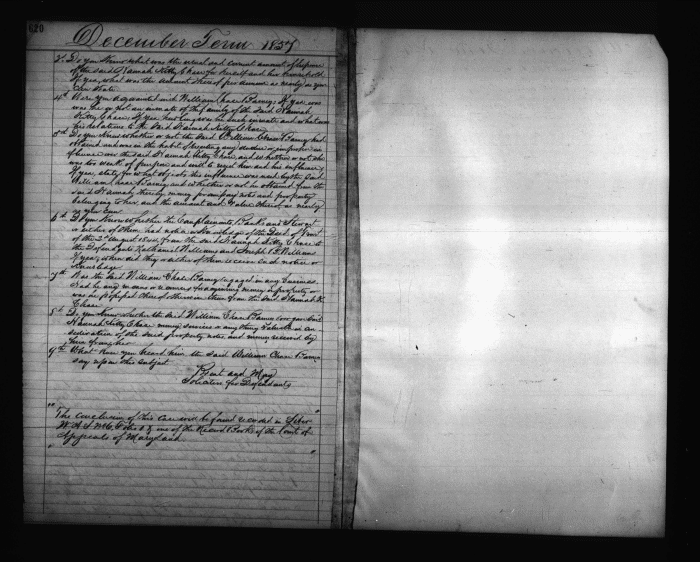 620
December Term 1857
3d Do you know what was the usual and correct amount of expense
of the said Hannah Kitty Chase for herself and her household
If yea, what was the amount thereof per annum as nearly as you
can state
4th Were you acquainted with William Chase Barney, If yea were
was he or not an inmate of the family of the said Hannah
Kitty Chase, If yea how long was he such inmate and what were
his relations to the said Hannah Kitty Chase
5th Do you know whether or not the said William Chase Barney had
obtained and was in the habit of exerting any undue or improper in
fluence over the said Hannah Kitty Chase, and whether or not she
was too weak of purpose and will to resist him and his influence,
If yea, state for what objects this influence was used by the said
William Chase Barney and whether or not he obtained from the
said Hannah Kitty money promissory notes and property
belonging to her and the amount and value thereof as nearly
as you can
6th Do you know whether the Complainants, and Stewart
or either of them had notice or knowledge of the Deed of Trust
of the 2nd August 1844, from the said Hannah Kitty Chase to
the Defendants Nathaniel Williams and Joseph Williams
If yea, when did they or either of them receive such notice or
knowledge
7th Was the said William Chase Barney engaged in any business
had he any means or resources for acquiring money or property or
was he possessed thereof otherwise than from the said Hannah K.
Chase
8th Do you know whether the said William Chase Barney ever gave said
Hannah Kitty Chase money services or any thing valuable in con
sideration of the said property notes, and money received by
him from her
9th What have you heard from the said William Chase Barney
say upon this subject
and May
Solicitors for Defendants
"The conclusion of this Case will be found recorded in Liber
W.A.S. No 6, Folio &c one of the Record Books of the Court of
Appeals of Maryland"